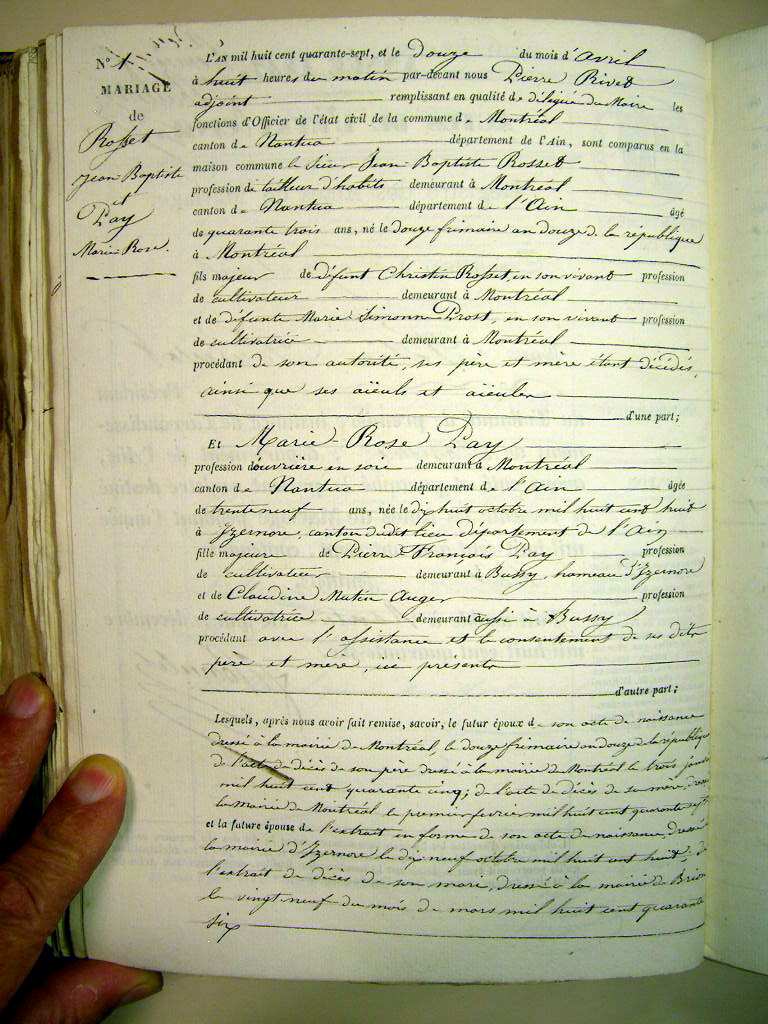 N° 1
MARIAGE
de
Rosset
Jean-Baptiste
et
Pay
Marie-Rose.
L'AN mil huit cent quarante-sept, et le douze du mois d'avril
à huit heures du matin par-devant nous Pierre Rivet
adjoint remplissant en qualité de délégué du Maire les
fonctions d'Officier de l'état civil de la commune de Montréal
canton de Nantua département de l'Ain, sont comparus en la
maison commune le sieur Jean-Baptiste Rosset
profession de tailleur d'habits demeurant à Montréal
canton de Nantua département de l'Ain âgé
de quarante trois ans, né le douze frimaire an douze de la république
à Montréal
fils majeur de défunt Christin Rosset, en son vivant profession
de cultivateur demeurant à Montréal
et de défunte Marie Simonne Prost, en son vivant profession
de cultivatrice demeurant à Montréal
procédant de son autorité, ses père et mère étant décédés,
ainsi que ses aïeuls et aïeules
d'une part;
Et Marie-Rose Pay
profession d'ouvrière en soie demeurant à Montréal
canton de Nantua département de l'Ain âgée
de trente neuf ans, née le dix huit octobre mil huit cent huit
à Izernore, canton dudit lieu département de l'Ain
fille majeure de Pierre-François Pay profession
de cultivateur demeurant à Bussy, hameau d'Izernore
et de Claudine Mutin Auger profession
de cultivatrice demeurant aussi à Bussy
procédant avec l'assistance et le consentement de ses dits
père et mère, ici présents
d'autre part;
Lesquels, après nous avoir fait remise, savoir, le futur époux de son acte de naissance
dressé à la mairie de Montréal, le douze frimaire an douze de la république
de l'acte de décès de son père dressé à la mairie de Montréal le trois
mil huit cent quarante cinq; de l'acte de décès de sa mère, dressé
la mairie de Montréal le premier février mil huit cent quarante sept
et la future épouse de l'extrait en forme de son acte de naissance dressé
la mairie d'Izernore le dix neuf octobre mil huit cent huit; de
l'extrait de décès de son mari, dressé à la mairie de
le vingt neuf du mois de mars mil huit cent quarante
six